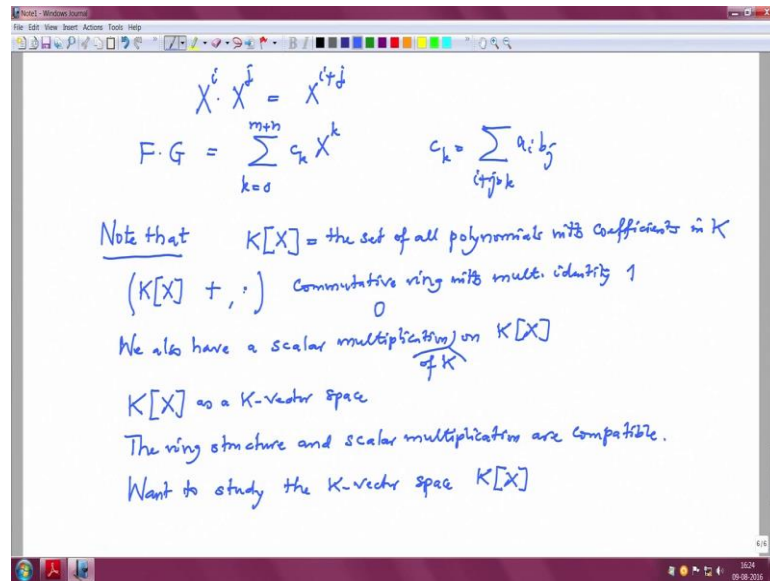 Note1 - Windows Journal
File Edit View Insert Actions Tools Help
X^i · X^j = X^{i+j}
F·G = \sum_{k=0}^{m+n} c_k X^k    c_k = \sum_{i+j=k} a_i b_j
Note that    K[X] = the set of all polynomials with coefficients in K
(K[X] +, ·) Commutative ring with mult. identity 1
0
We also have a scalar multiplication on K[X]
of K
K[X] as a K-vector space
The ring structure and scalar multiplication are compatible.
Want to study the K-vector space K[X]
6/6
16:24
09-08-2016